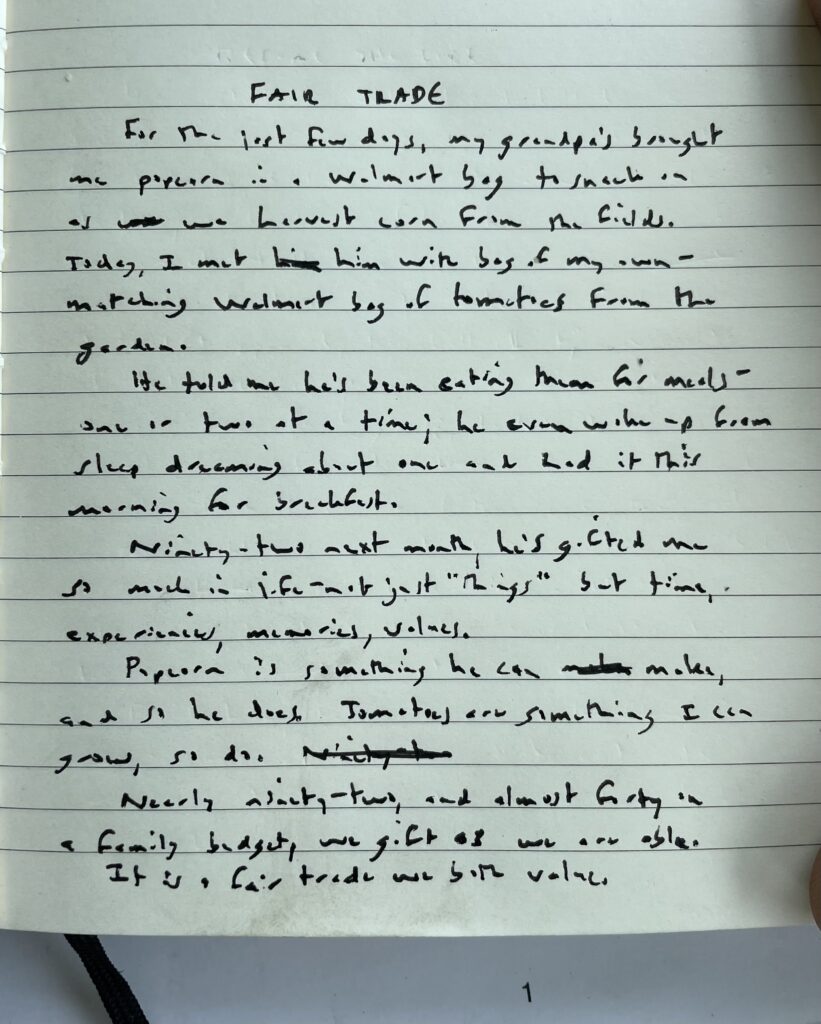 FAIR TRADE
For the past few days, my grandpa's brought
me popcorn in a Walmart bag to snack on
as we harvest corn from the fields.
Today, I met him with bag of my own-
matching Walmart bag of tomatoes from the
garden.
He told me he's been eating them for meals-
one or two at a time; he even woke up from
sleep dreaming about one and had it this
morning for breakfast.
Ninety-two next month, he's gifted me
so much in life-not just "things" but time,
experiences, memories, values.
Popcorn is something he can make,
and so he does. Tomatoes are something I can
grow, so do.
Nearly ninety-two, and almost forty on
a family budget, we gift as we are able.
It is a fair trade we both value.
1